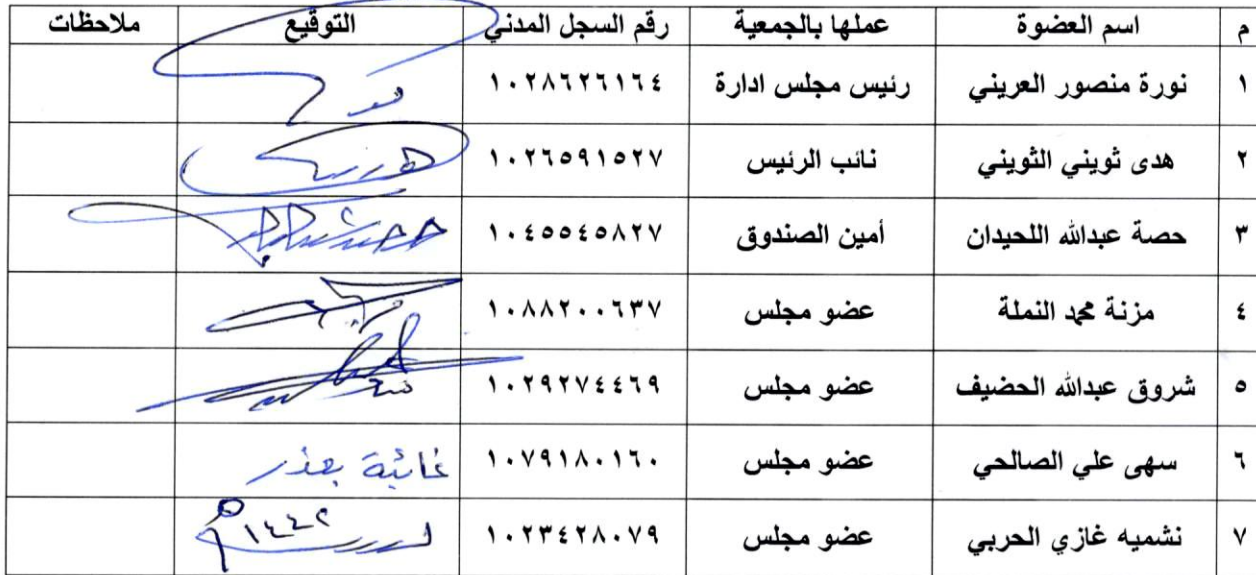 م اسم العضوة عملها بالجمعية رقم السجل المدني التوقيع ملاحظات
١ نورة منصور العريني رئيس مجلس ادارة ١٠٢٨٦٢٦١٦٤
٢ هدى ثويني الثويني نائب الرئيس ١٠٢٦٥٩١٥٢٧
٣ حصة عبدالله اللحيدان أمين الصندوق ١٠٤٥٥٤٥٨٢٧
٤ مزنة محمد النملة عضو مجلس ١٠٨٨٢٠٠٦٣٧
٥ شروق عبدالله الحضيف عضو مجلس ١٠٢٩٢٧٤٤٦٩
٦ سهى علي الصالحي عضو مجلس ١٠٧٩١٨٠١٦٠ غائبة بعذر
٧ نشميه غازي الحربي عضو مجلس ١٠٢٣٤٢٨٠٧٩